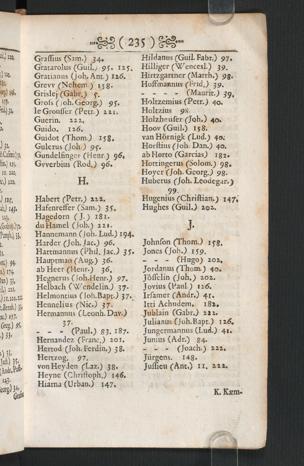 ( 235 )
Grassius (Sam.) 34.
Gratarolus (Guil.) 95. 125.
Gratianus (Joh. Ant.) 126.
Grevv (Nehem.) 158.
Grislej (Gabr.) 5.
Grofs (Joh. Georg.) 95.
le Grousser (Petr.) 221.
Guerin. 222.
Guido. 126.
Guidot (Thom.) 158.
Gulerus (Joh.) 95.
Gundelfinger (Henr.) 96.
Gvverbius (Rod.) 96.
H.
Habert (Petr.) 222.
Hafenreffer (Sam.) 35.
Hagedorn (J.) 181.
du Hamel (Joh.) 221.
Hannemann (Joh. Lud.) 194.
Harder (Joh. Jac.) 96.
Hartmannus (Phil. Jac.) 35.
Hauptman (Aug.) 36.
ab Heer (Henr.) 36.
Hegnerus (Joh. Henr.) 97.
Helbach (Wendelin.) 37.
Helmontius (Joh. Bapt.) 37.
Hemelius (Nic.) 37.
Hermannus (Leonh. Dav.)
37.
- - - (Paul.) 83. 187.
Hernandez (Franc.) 201.
Herrod (Joh. Ferdin.) 38.
Hertzog. 97.
von Heyden (Caz.) 38.
Heyne (Christoph.) 146.
Hiarna (Urban.) 147.
Hildanus (Guil. Fabr.) 97.
Hilliger (Wencesl.) 39.
Hirtzgartner (Matth.) 98.
Hoffmannus (Frid.) 39.
- - - (Maurit.) 39.
Holtzemius (Petr.) 40.
Holtzius 98.
Holzheuser (Joh.) 40.
Hoov (Guil.) 158.
van Hörnigk (Lud.) 40.
Horstius (Joh. Dan.) 40.
ab Horto (Garcias) 181.
Hottingerus (Solom.) 98.
Hoyer (Joh. Georg.) 98.
Huberus (Joh. Leodegar.)
99.
Hugenius (Christian.) 147.
Hughes (Guil.) 202.
J.
Johnson (Thom.) 158.
Jones (Joh.) 159.
- - - (Hugo) 202.
Jordanus (Thom.) 40.
Jovius (Paul.) 126.
Itti Achudem. 182.
Jublain (Gabr.) 221.
Julianus (Joh. Bapt.) 126.
Jungermannus (Lud.) 41.
Junius (Adr.) 84.
- - - (Joach.) 222.
Jürgens. 148.
Jussieu (Ant.) 11. 222.
K. Kæm-